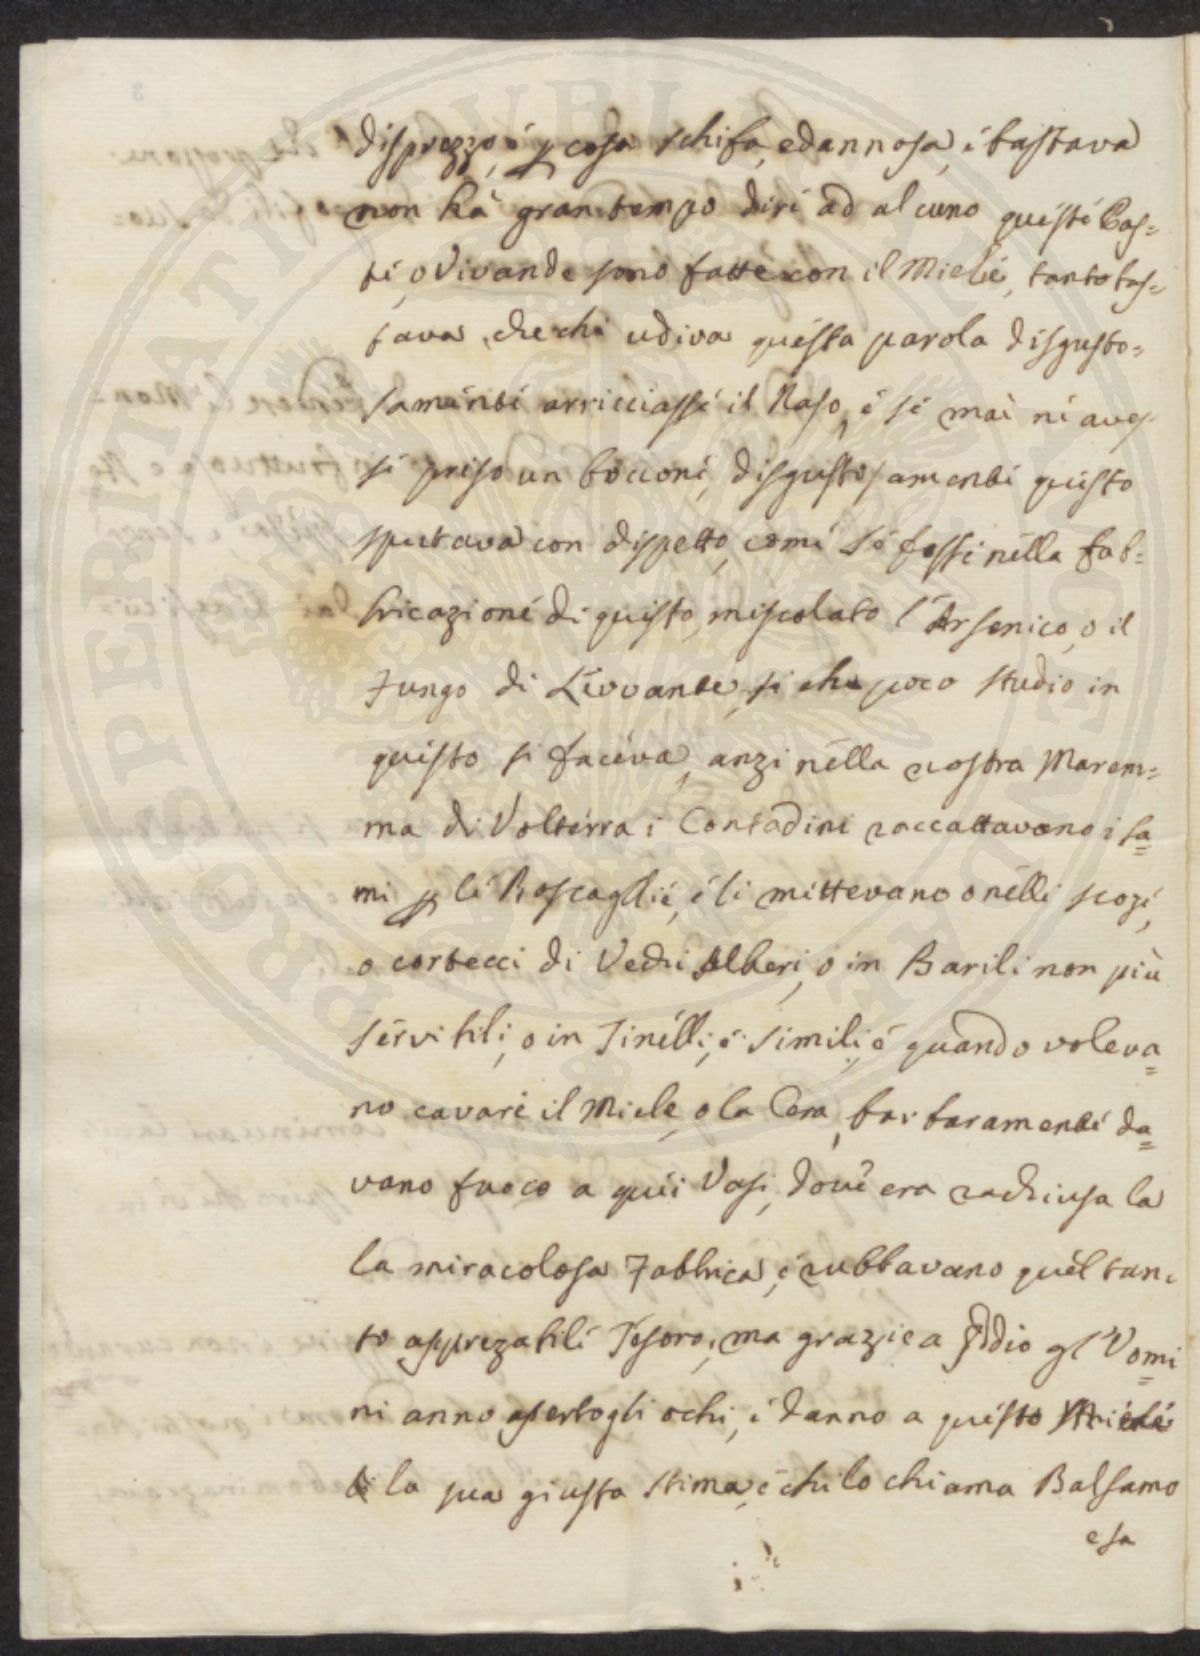 disprezzo, é p cosa schifa, edannosa, é bastava
non hà gran tempo diré ad alcuno questé Pas=
té, o Vivande sono fatté con il Mielé, tanto bas=
tava, che chi udiva questa parola disgusto=
samenté arricciassé il Naso, é sé mai né aves-
sé préso un bocconé, disgustosamenté questo
sputava con dispetto, comé sé fossé nella fab=
bricazioné di questo, mescolato l'Arsenico, o il
Fungo di Levvante, si che poco studio in
questo si faceva, anzi nella nostra Marem=
ma di Volterra i Contadini raccattavano i sa=
mi p lé Boscaglié, é li mettevano o nelli scozé,
o cortecci di Vechi Alberi, o in Barili non più
servibili, o in Tinelli, é simili, é quando voleva=
no cavaré il Miele, o la Cera, barbaramenté da=
vano fuoco a quéi Vasi, dové era rachiusa la
la miracolosa Fabbrica, é rubbavano quel tan=
to apprezabilé Tesoro, ma grazie a Iddio gl'Uomi=
ni anno aperto gli ochi, é danno a questo Mielé
la sua giusta stima, é chi lo chiama Balsamo
esa
PROSPERITATI PUBLICAE AUGENDAE